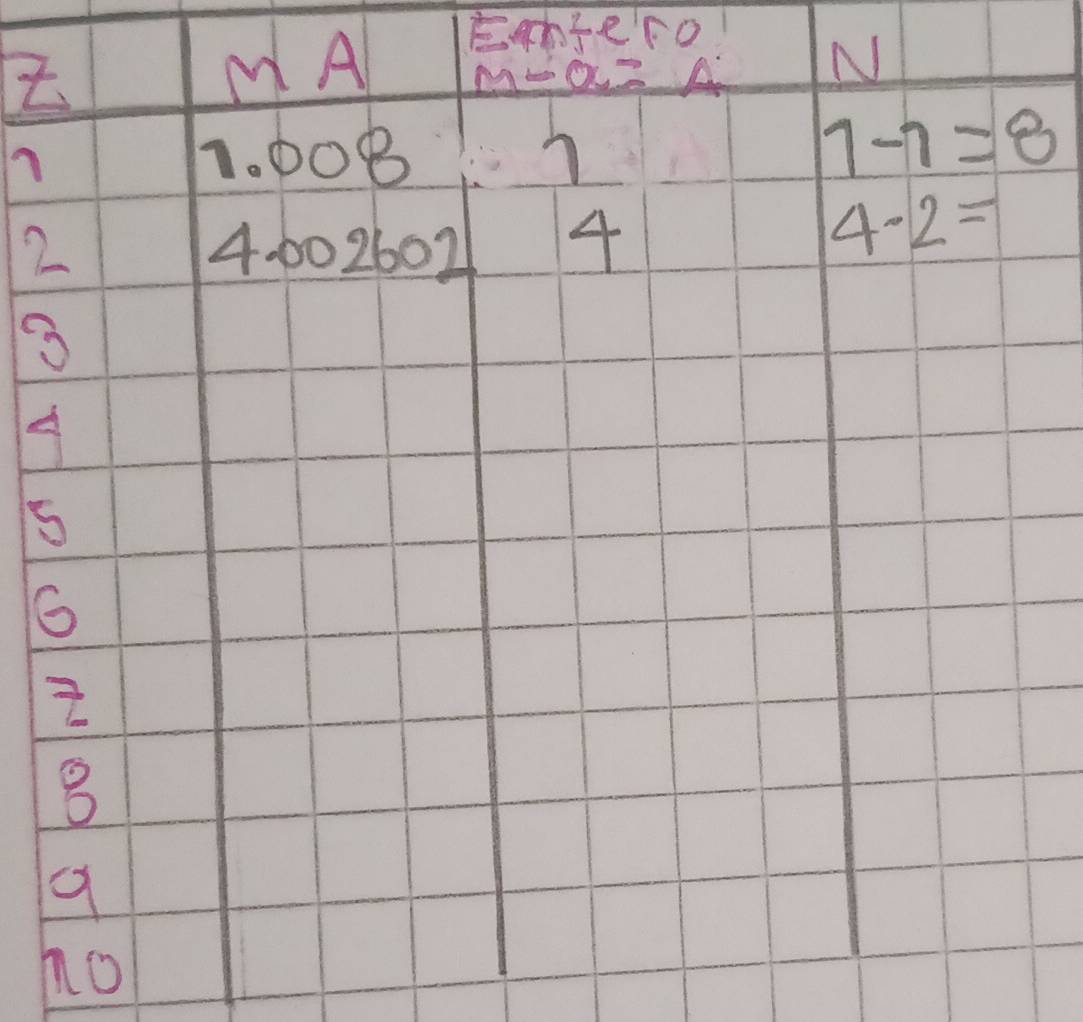 Z MA Entero N
m-a= A
1 1.008 1 1-1=0
2 4.002602 4 4-2=
3
4
5
6
7
8
9
10